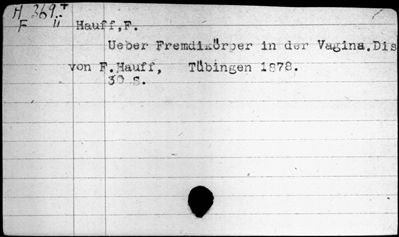 H 369.+
F II
Hauff,F.
Ueber Fremdikörper in der Vagina.Dis
von F.Hauff, Tübingen 1878.
30 S.